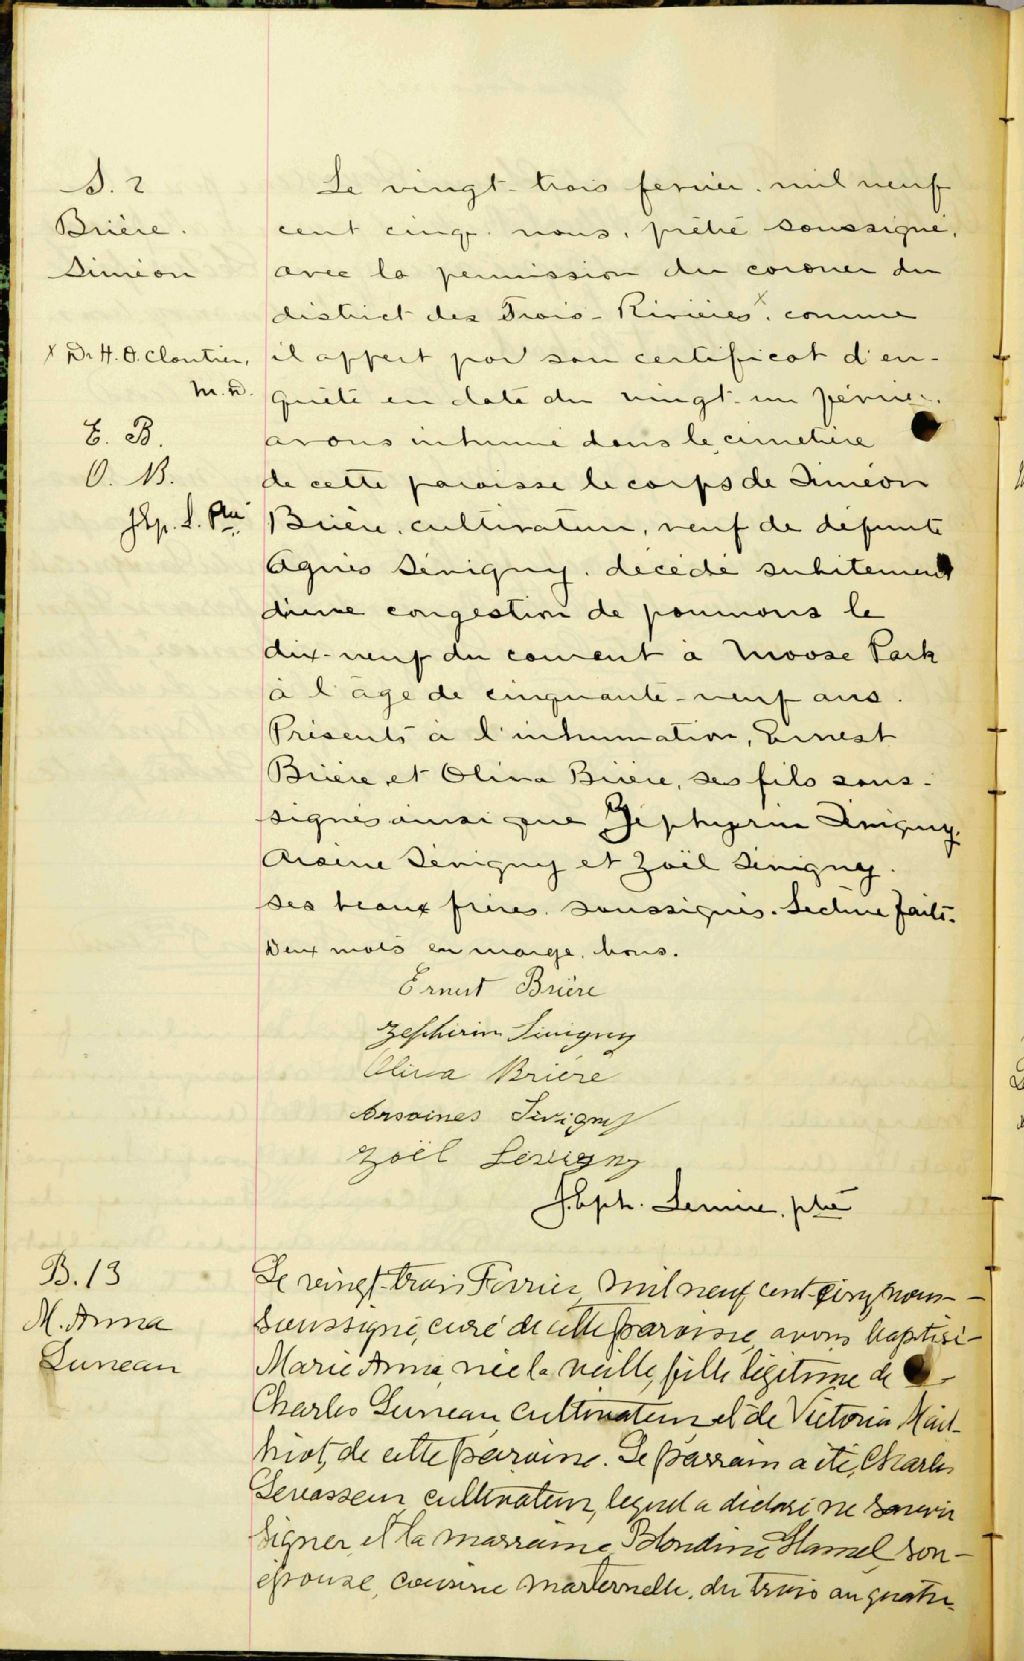 S. 2
Brière.
Siméon
x Dr H. O. Cloutier,
M. D.
E. B.
O. B.
J. Ep. L. Ptre
Le vingt-trois fevrier. mil neuf
cent cinq. nous, prêtre soussigné,
avec la permission du coroner du
district des Trois-Rivières x, comme
il appert par son certificat d'en-
quête en date du vingt-un février,
avons inhumé dans le cimetière
de cette paroisse le corps de Siméon
Brière, cultivateur, veuf de défunte
Agnès Sévigny. décédé subitement
d'une congestion de poumons le
dix-neuf du courant à Moose Park
à l'âge de cinquante-neuf ans.
Présents à l'inhumation, Ernest
Brière et Oliva Brière, ses fils sous-
signés ainsi que Zéphyrin Sévigny,
Arsène Sévigny et Zoël Sévigny.
ses beaux frères soussignés. Lecture faite.
Deux mots en marge, bons.
Ernest Brière
Zephirin Sivigny
Oliva Brière
Arsaines Sivigny
Zoël Sevigny
J. Eph. Lemire, ptre
B. 13
M. Anna
Luneau
Le vingt-trois Fevrier, mil neuf cent-cinq, nous-
Soussigné, curé de cette paroisse, avons baptisé-
Marie Anna, née la veille, fille légitime de -
Charles Luneau, cultivateur, et de Victoria Mail-
hiot, de cette paroisse. Le parrain a été, Charles
Levasseur, cultivateur, lequel a déclaré ne savoir
signer, et la marraine, Blondine Hamel, son-
épouse, cousine maternelle, du trois au quatre